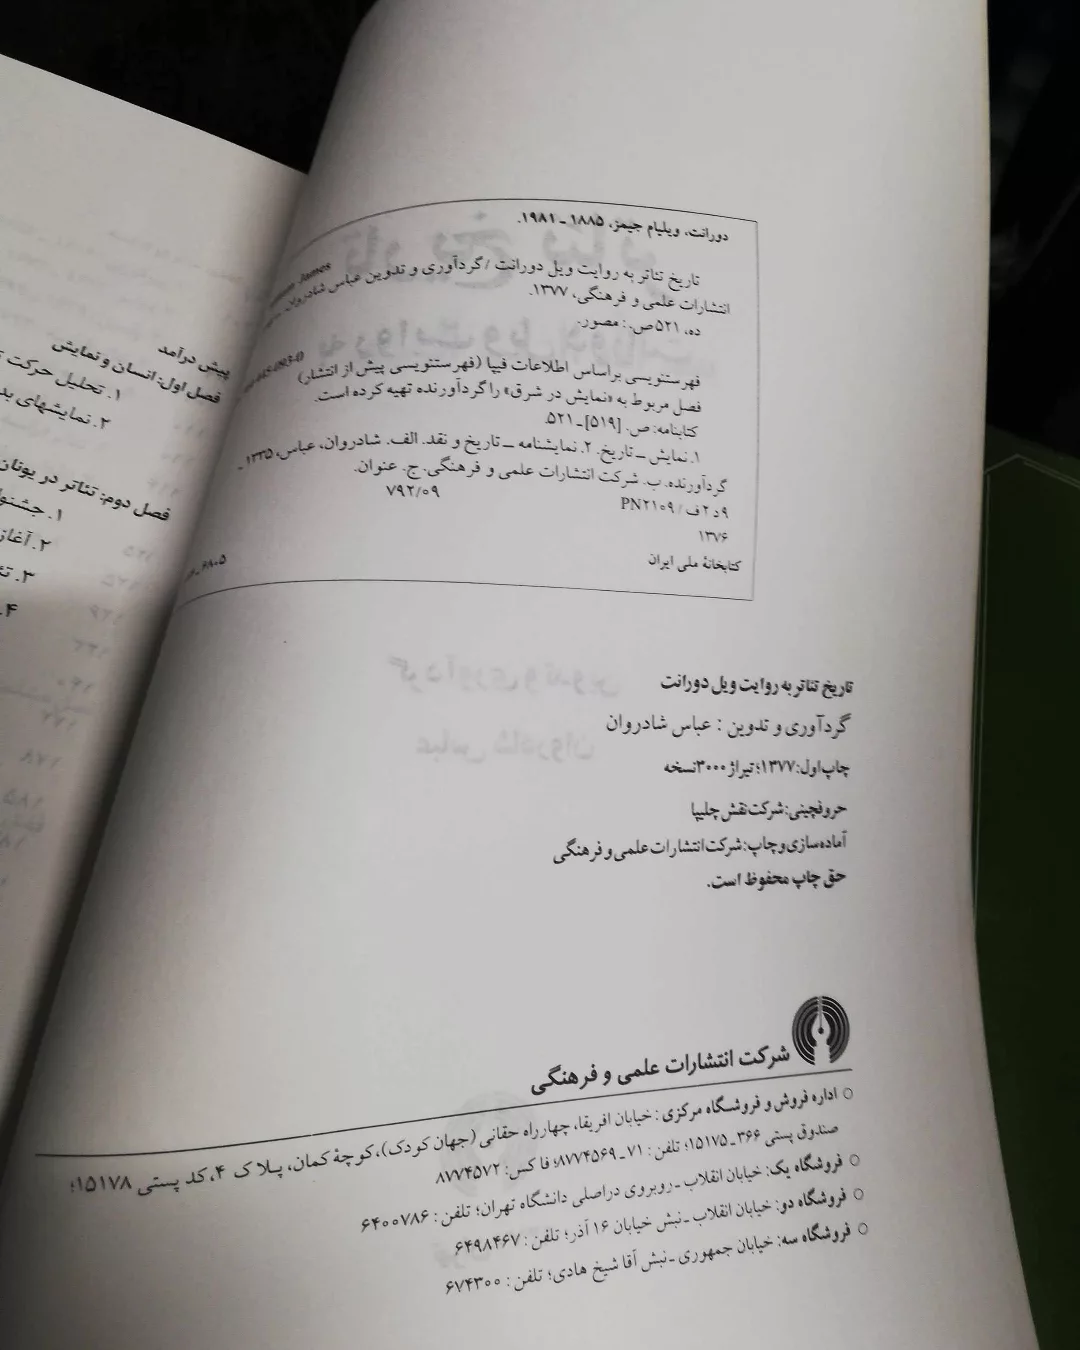 دورانت، ویلیام جیمز، ۱۸۸۵ ـ ۱۹۸۱.
James
تاریخ تئاتر به روایت ویل دورانت / گردآوری و تدوین عباس شادروان.
انتشارات علمی و فرهنگی، ۱۳۷۷.
ده، ۵۲۱ ص. : مصور.
فهرستنویسی براساس اطلاعات فیپا (فهرستنویسی پیش از انتشار)
فصل مربوط به «نمایش در شرق» را گردآورنده تهیه کرده است.
کتابنامه: ص. [۵۱۹] ـ ۵۲۱.
۱. نمایش ــ تاریخ. ۲. نمایشنامه ــ تاریخ و نقد. الف. شادروان، عباس، ۱۳۳۵ ـ
گردآورنده. ب. شرکت انتشارات علمی و فرهنگی. ج. عنوان.
۹د۲ف / PN۲۱۰۹ ۷۹۲/۰۹
۱۳۷۶
کتابخانهٔ ملی ایران
تاریخ تئاتر به روایت ویل دورانت
گردآوری و تدوین : عباس شادروان
چاپ اول: ۱۳۷۷؛ تیراژ ۳۰۰۰ نسخه
حروفچینی: شرکت نقش چلیپا
آماده‌سازی و چاپ: شرکت انتشارات علمی و فرهنگی
حق چاپ محفوظ است.
شرکت انتشارات علمی و فرهنگی
○ اداره فروش و فروشگاه مرکزی : خیابان افریقا، چهارراه حقانی (جهان کودک)، کوچهٔ کمان، پلاک ۴، کد پستی ۱۵۱۷۸؛
صندوق پستی ۳۶۶ ـ ۱۵۱۷۵؛ تلفن : ۷۱ ـ ۸۷۷۴۵۶۹؛ فاکس: ۸۷۷۴۵۷۲
○ فروشگاه یک: خیابان انقلاب ـ روبروی دراصلی دانشگاه تهران؛ تلفن : ۶۴۰۰۷۸۶
○ فروشگاه دو: خیابان انقلاب ـ نبش خیابان ۱۶ آذر؛ تلفن : ۶۴۹۸۴۶۷
○ فروشگاه سه: خیابان جمهوری ـ نبش آقا شیخ هادی؛ تلفن : ۶۷۴۳۰۰
پیش درآمد
فصل اول: انسان و نمایش
۱. تحلیل حرکت
۲. نمایشهای
فصل دوم: تئاتر در یونان
۱.
۲. آغاز
۳.
۴.